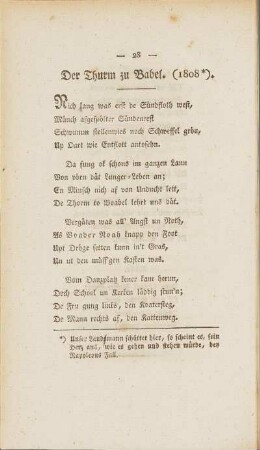 — 28 —
Der Thurm zu Babel. (1808*).
Nich lang was erst de Sündfloth west,
Münch afgespölter Sündenrest
Schwumm stellenwies noch Schweffel gehn,
Up Oart wie Entflott antosehn.
Da fung ok schons im ganzen Lann
Von vörn dät Lunger-Leben an;
En Minsch nich af von Unducht lett,
De Thorm to Voabel lehrt uns dät.
Vergäten was all' Angst un Noth,
As Voader Noah knapp den Foot
Upt Dröge setten kunn in't Gras,
Un ut den müff'gen Kasten was.
Vam Danzplatz kener kam herun,
Doch School un Kerken läddig stun'n;
De Fru gung links, den Knatersteg,
De Mann rechts af, den Kartenweg.
*) Unser Landsmann schüttet hier, so scheint es, sein
Herz aus, wie es gehen und stehen würde, bey
Napoleons Fall.